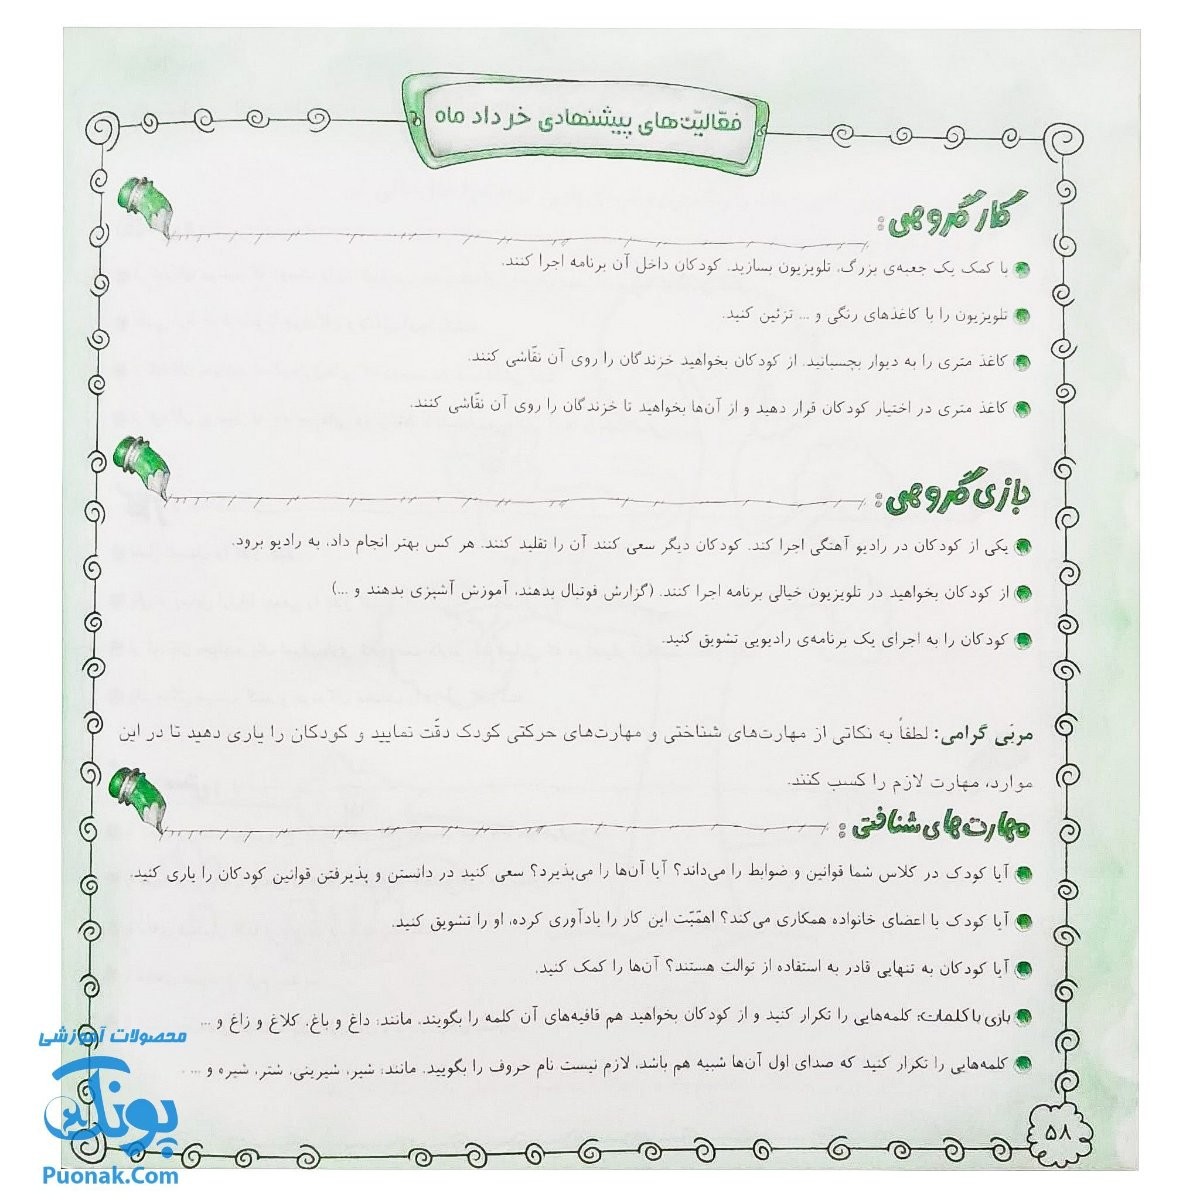 فعّالیّت‌های پیشنهادی خرداد ماه
کار گروهی:
با کمک یک جعبه‌ی بزرگ، تلویزیون بسازید. کودکان داخل آن برنامه اجرا کنند.
تلویزیون را با کاغذهای رنگی و ... تزئین کنید.
کاغذ متری را به دیوار بچسبانید. از کودکان بخواهید خزندگان را روی آن نقّاشی کنند.
کاغذ متری در اختیار کودکان قرار دهید و از آن‌ها بخواهید تا خزندگان را روی آن نقّاشی کنند.
بازی گروهی:
یکی از کودکان در رادیو آهنگی اجرا کند. کودکان دیگر سعی کنند آن را تقلید کنند. هر کس بهتر انجام داد، به رادیو برود.
از کودکان بخواهید در تلویزیون خیالی برنامه اجرا کنند. (گزارش فوتبال بدهند، آموزش آشپزی بدهند و ...)
کودکان را به اجرای یک برنامه‌ی رادیویی تشویق کنید.
مربّی گرامی: لطفاً به نکاتی از مهارت‌های شناختی و مهارت‌های حرکتی کودک دقّت نمایید و کودکان را یاری دهید تا در این
موارد، مهارت لازم را کسب کنند.
مهارت‌های شناختی:
آیا کودک در کلاس شما قوانین و ضوابط را می‌داند؟ آیا آن‌ها را می‌پذیرد؟ سعی کنید در دانستن و پذیرفتن قوانین کودکان را یاری کنید.
آیا کودک با اعضای خانواده همکاری می‌کند؟ اهمّیّت این کار را یادآوری کرده، او را تشویق کنید.
آیا کودکان به تنهایی قادر به استفاده از توالت هستند؟ آن‌ها را کمک کنید.
بازی با کلمات: کلمه‌هایی را تکرار کنید و از کودکان بخواهید هم قافیه‌های آن کلمه را بگویند. مانند: داغ و باغ، کلاغ و زاغ و ...
کلمه‌هایی را تکرار کنید که صدای اول آن‌ها شبیه هم باشد، لازم نیست نام حروف را بگویید. مانند: شیر، شیرینی، شتر، شیره و ... .
۵۸
محصولات آموزشی
پونک
Puonak.Com